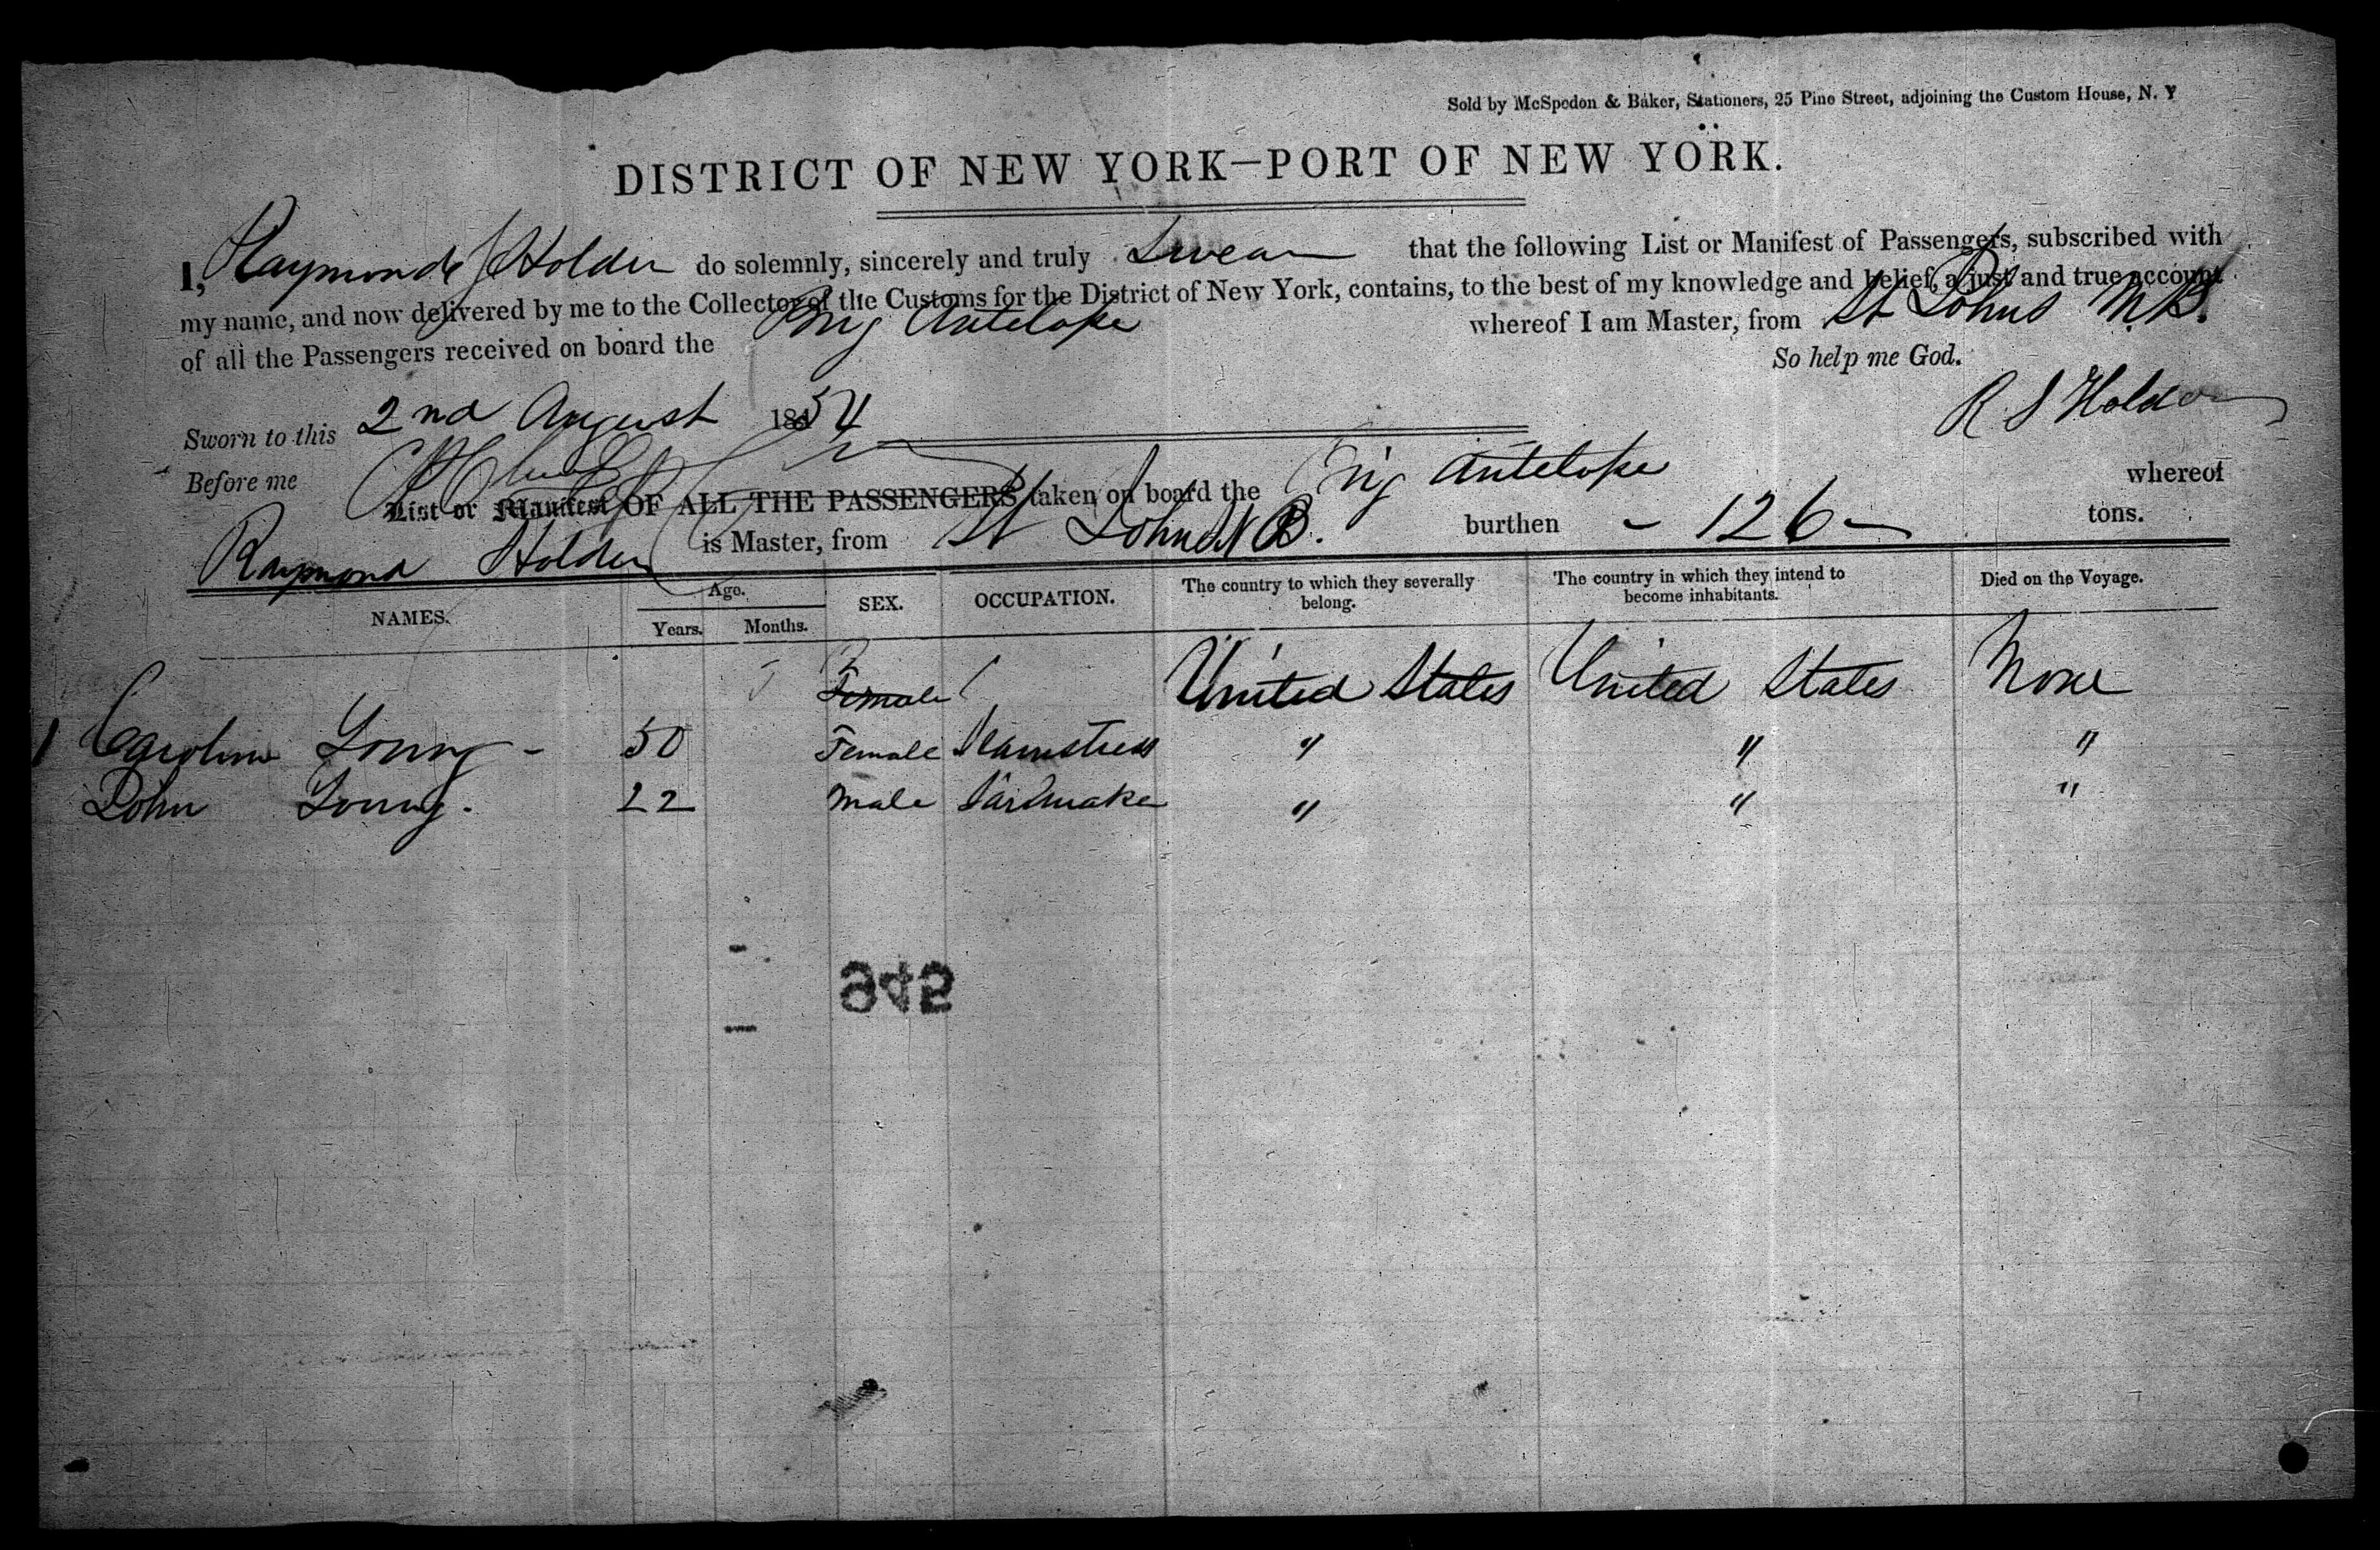 Sold by McSpedon & Baker, Stationers, 25 Pine Street, adjoining the Custom House, N. Y
DISTRICT OF NEW YORK—PORT OF NEW YORK.
I, Raymond Holder do solemnly, sincerely and truly Swear that the following List or Manifest of Passengers, subscribed with
my name, and now delivered by me to the Collector of the Customs for the District of New York, contains, to the best of my knowledge and belief, a just and true account
of all the Passengers received on board the Brig Antelope whereof I am Master, from St Johns N.B.
So help me God.
Sworn to this 2nd August 1854
R S Holder
Before me
List or Manifest OF ALL THE PASSENGERS taken on board the Brig Antelope whereof
Raymond Holder is Master, from St John N B. burthen - 126 - tons.
NAMES. Age. Years. Months. SEX. OCCUPATION. The country to which they severally belong. The country in which they intend to become inhabitants. Died on the Voyage.
Female United States United States None
1 Caroline Young - 50 Female Seamstress " " "
John Young. 22 Male " " "